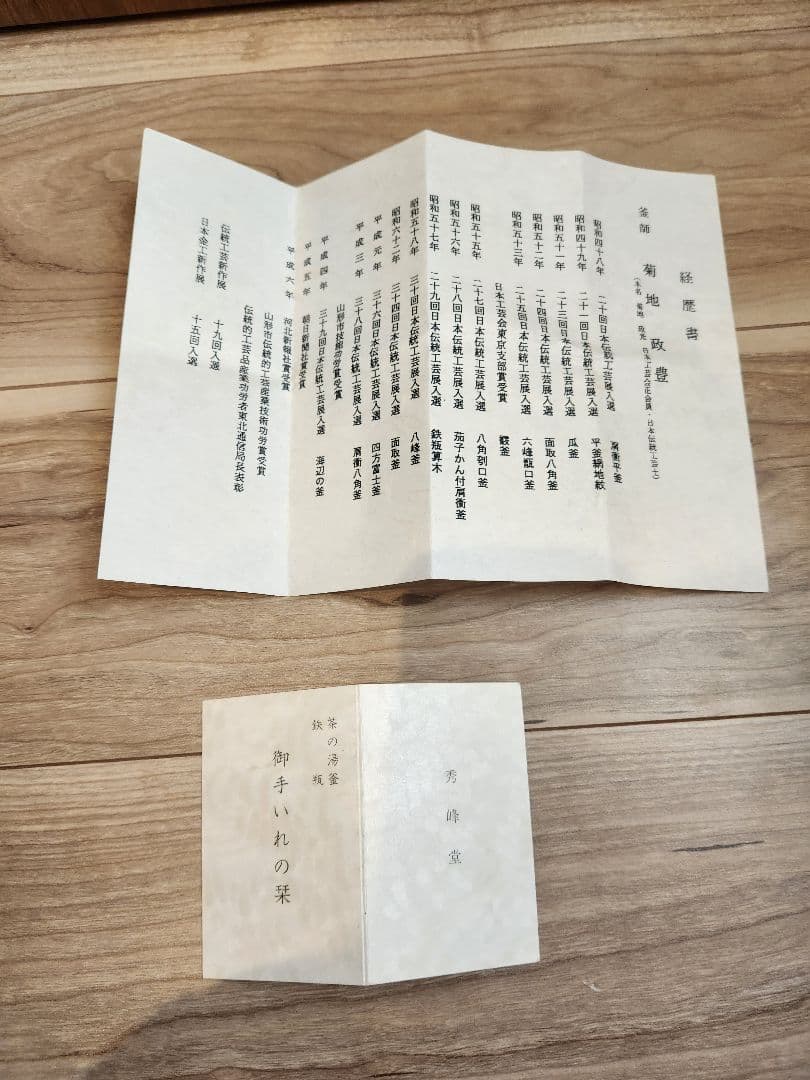 経歴書
釜師 菊地 政豊
(本名 菊地 政光 日本工芸会正会員・日本伝統工芸士)
昭和四十八年 二十回日本伝統工芸展入選 肩衝平釜
昭和四十九年 二十一回日本伝統工芸展入選 平釜網地紋
昭和五十一年 二十三回日本伝統工芸展入選 瓜釜
昭和五十二年 二十四回日本伝統工芸展入選 面取八角釜
昭和五十三年 二十五回日本伝統工芸展入選 六峰甑口釜
日本工芸会東京支部賞受賞 釜
昭和五十五年 二十七回日本伝統工芸展入選 八角刳口釜
昭和五十六年 二十八回日本伝統工芸展入選 茄子かん付肩衝釜
昭和五十七年 二十九回日本伝統工芸展入選 鉄瓶算木
昭和五十八年 三十回日本伝統工芸展入選 八峰釜
昭和六十二年 三十四回日本伝統工芸展入選 面取釜
平成元年 三十六回日本伝統工芸展入選 四方富士釜
平成三年 三十八回日本伝統工芸展入選 肩衝八角釜
山形市技能功労賞受賞
平成四年 三十九回日本伝統工芸展入選 海辺の釜
平成五年 朝日新聞社賞受賞
平成六年 河北新報社賞受賞
山形市伝統的工芸産業技術功労賞受賞
伝統的工芸品産業功労者東北通信局長表彰
伝統工芸新作展 十九回入選
日本金工新作展 十五回入選
秀峰堂
茶の湯釜
鉄瓶
御手いれの栞